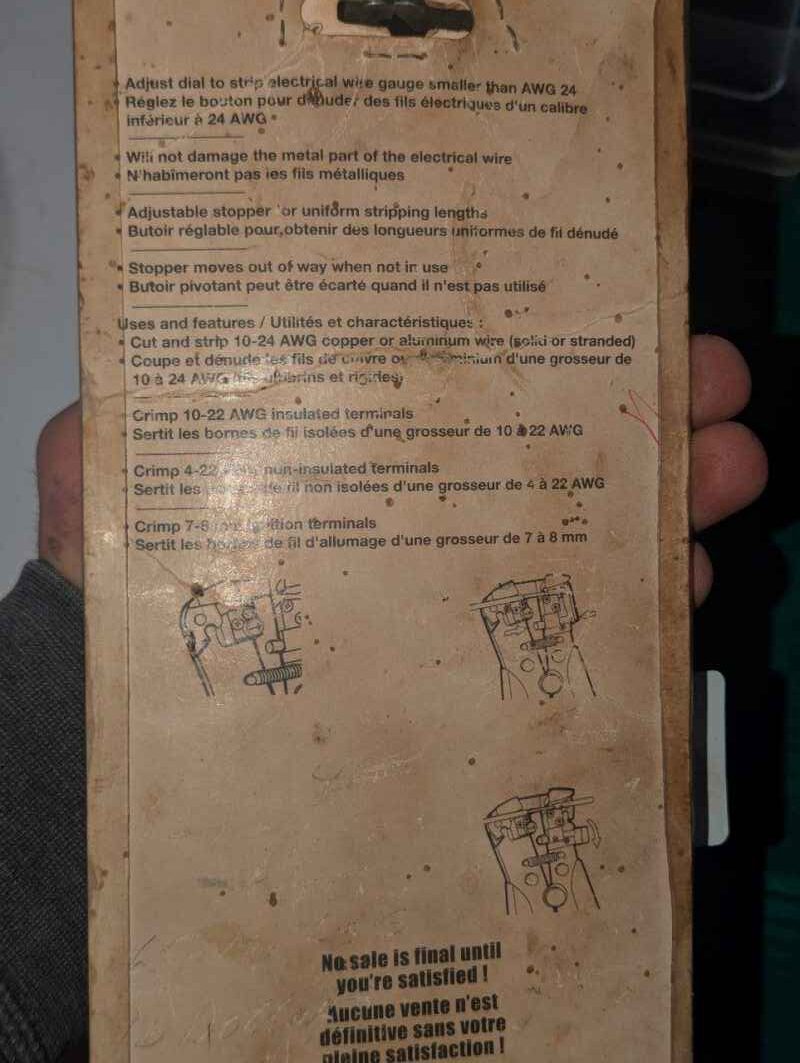 • Adjust dial to strip electrical wire gauge smaller than AWG 24
• Réglez le bouton pour dénuder des fils électriques d'un calibre
inférieur à 24 AWG
• Will not damage the metal part of the electrical wire
• N'habîmeront pas les fils métalliques
• Adjustable stopper for uniform stripping lengths
• Butoir réglable pour obtenir des longueurs uniformes de fil dénudé
• Stopper moves out of way when not in use
• Butoir pivotant peut être écarté quand il n'est pas utilisé
Uses and features / Utilités et charactéristiques :
• Cut and strip 10-24 AWG copper or aluminum wire (solid or stranded)
• Coupe et dénude les fils de cuivre ou d'aluminium d'une grosseur de
10 à 24 AWG et rigides)
• Crimp 10-22 AWG insulated terminals
• Sertit les bornes de fil isolées d'une grosseur de 10 à 22 AWG
• Crimp 4-22 AWG non-insulated terminals
• Sertit les bornes de fil non isolées d'une grosseur de 4 à 22 AWG
• Crimp 7-8 mm ignition terminals
• Sertit les bornes de fil d'allumage d'une grosseur de 7 à 8 mm
No sale is final until
you're satisfied !
Aucune vente n'est
définitive sans votre
pleine satisfaction !